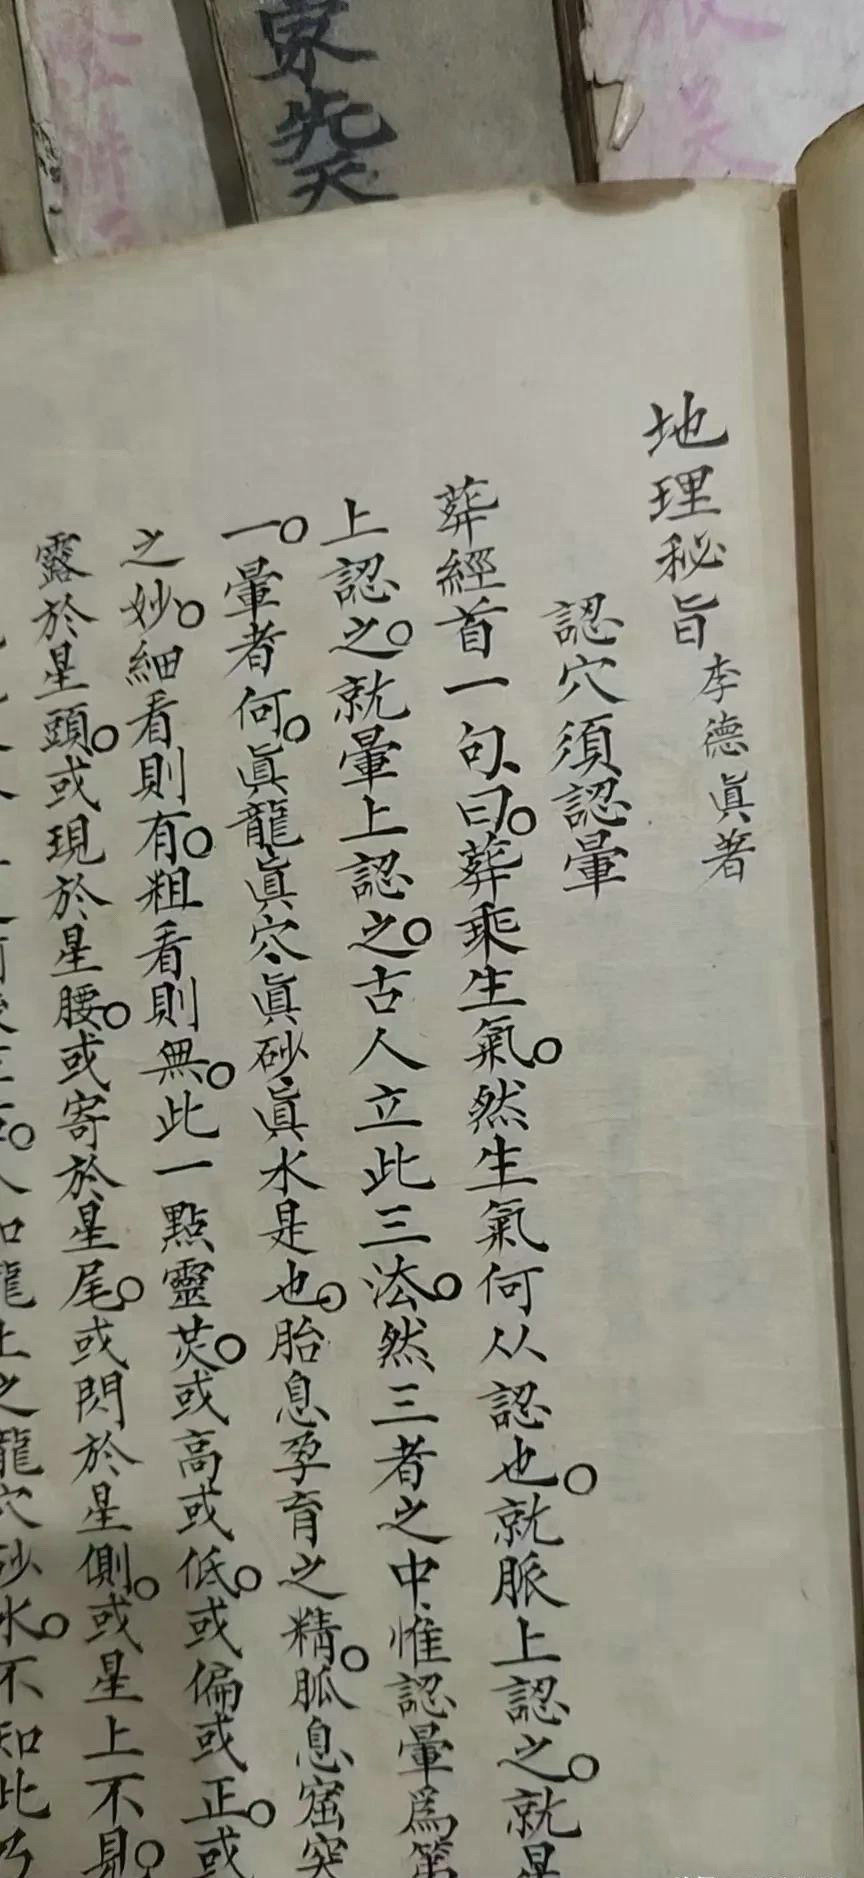 地理秘旨 李德眞著
認穴須認暈
葬經首一句、曰。葬乘生氣。然生氣何从認也。就脈上認之。就星
上認之。就暈上認之。古人立此三法。然三者之中、惟認暈爲第
一。暈者何。眞龍、眞穴、眞砂、眞水是也。胎息孕育之精。胍息窟突
之妙。細看則有。粗看則無。此一點靈荧。或高或低。或偏或正。或
露於星頭。或現於星腰。或寄於星尾。或閃於星側。或星上不見。
龍上之龍穴砂水。不知此乃
家先天